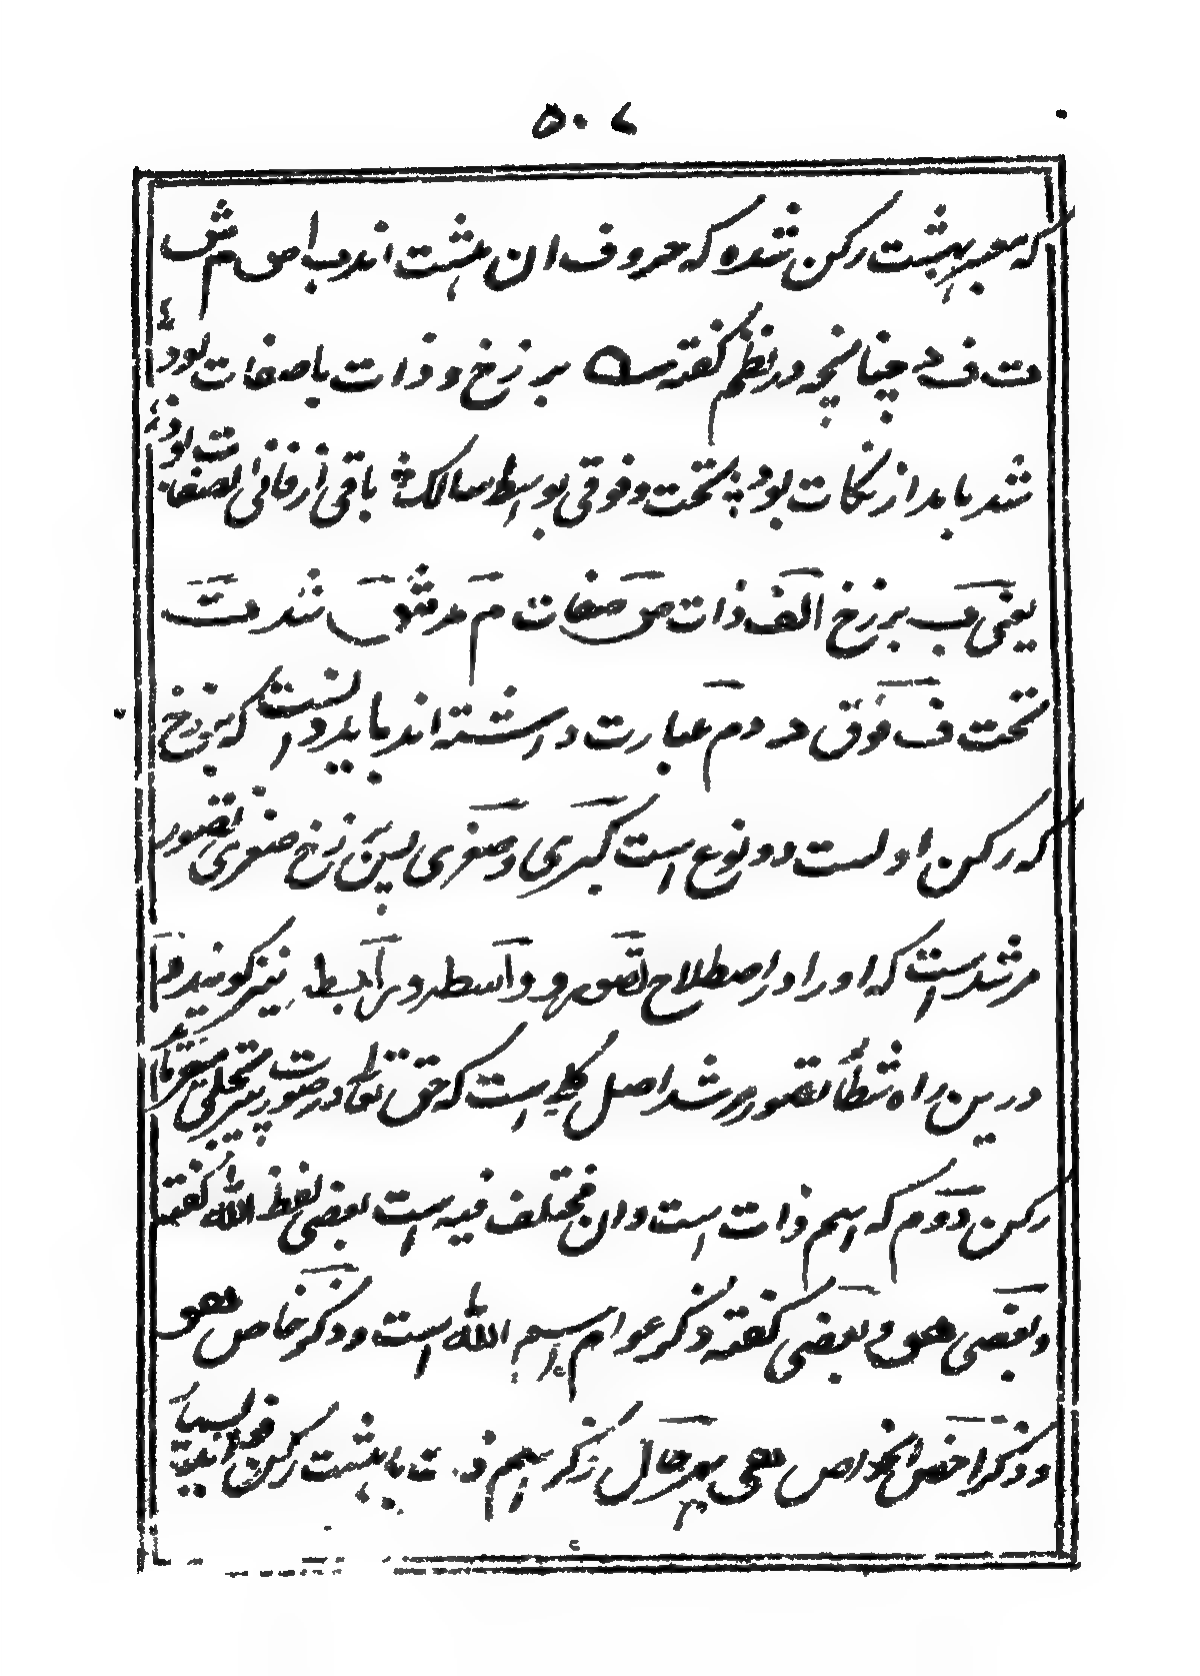 ۵۰۷
که معبر بهشت رکن شده که حروف ان هشت اند ب ا ص م ش
ت ف د چنانچه در نظم گفته برزخ و ذات با صفات بود
شد باید از نکات بود تحت و فوقی بوسط سالک باقی از فانی الصفات بود
یعنی ب برزخ الف ذات ص صفات م مد ش شد ت
تحت ف فوق د دم عبارت داشته اند باید دانست که برزخ
که رکن اولست دو نوع است کبری و صغری پس برزخ صغری تصور
مرشد است که او را در اصطلاح تصور و واسطه و رابطه نیز گویند و
درین راه تصور مرشد اصل کلیه است که حق تعالی در صورت پیر تجلی میفرماید
رکن دوم که اسم ذات است و ان مختلف فیه است بعضی لفظ الله گفته
و بعضی هو و بعضی گفته ذکر عوام اسم الله است و ذکر خاص هو
و ذکر اخص الخواص هی بهر حال ذکر اسم ذات با هشت رکن